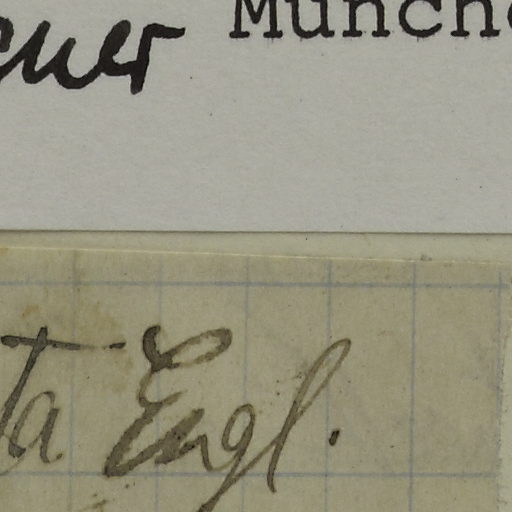 ener Münche
ta Engl.